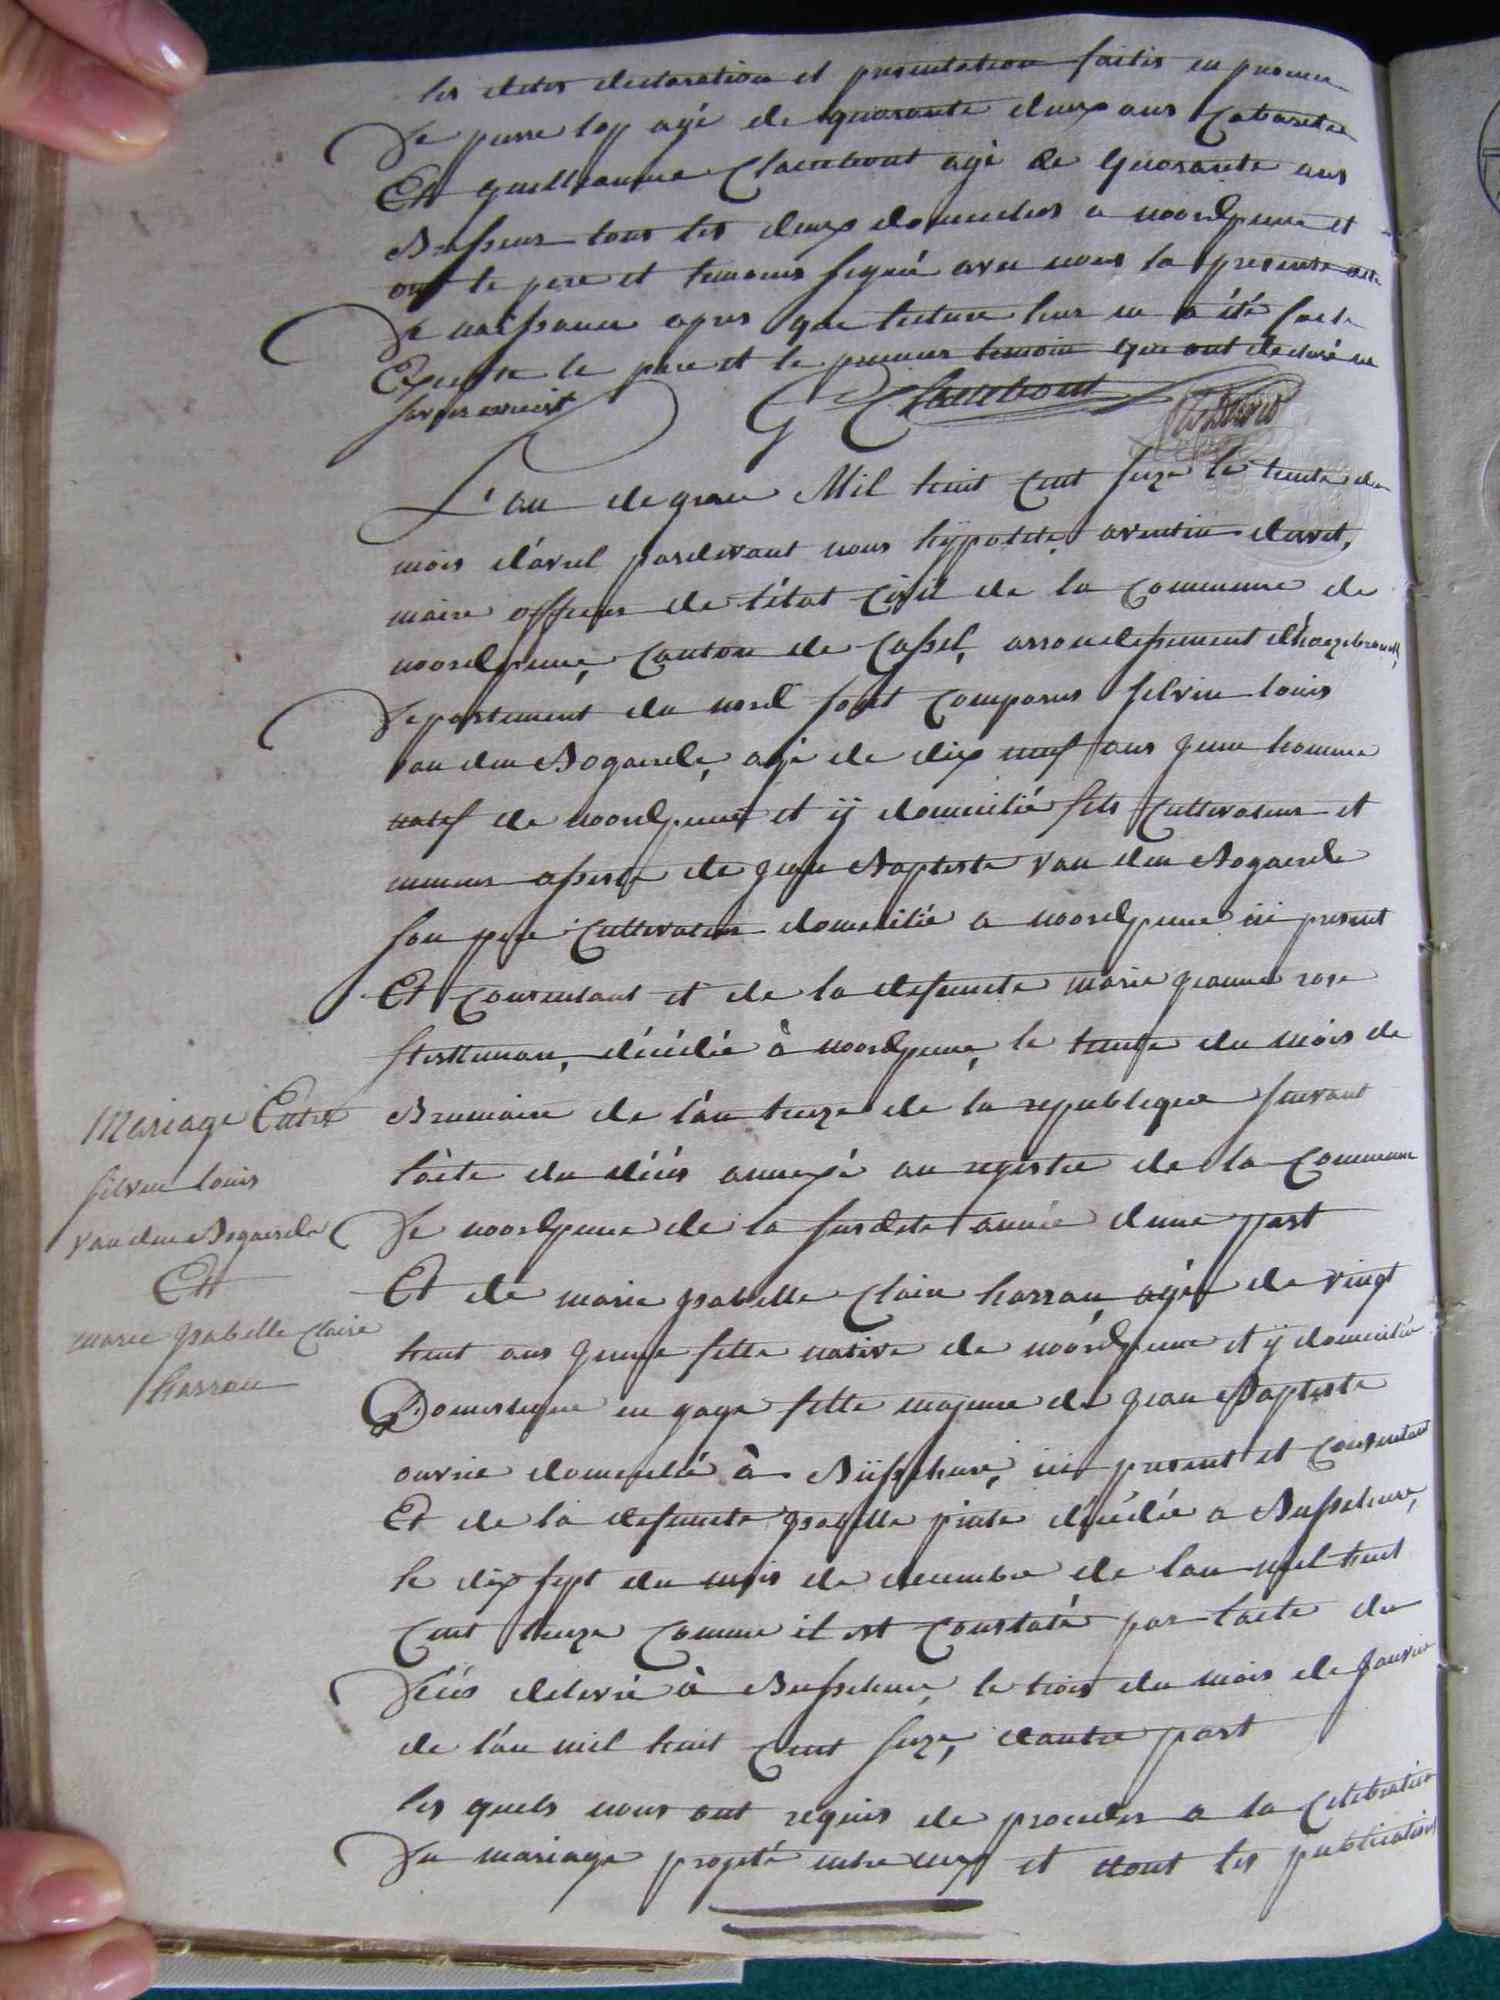 les dites declaration et presentation faites en presence
De pierre loy agé de quarante deux ans Cabaretier
Et guilleaume Claerebout agé de quarante ans
Brasseur tous les deux domicilies a noordpeene et
ont le pere et temoins signé avec nous la presente acte
De naissance apres que lecture leur en a été faite
Excepté le pere et le premier temoin qui ont declaré ne
savoir ecrire
G Claerebout
L'an de grace Mil huit Cent seize le trente du
mois d'avril pardevant nous hÿpolite, aventin
maire officier de l'état Civil de la Commune de
noordpeene, Canton de Cassel, arrondissement d'hazebrouck,
Departement du nord sont Comparus silvin louis
van den Bogaerde, agé de dix neuf ans jeune homme
natif de noordpeene et ÿ domicilié fils Cultivateur et
mineur assisté de jean Baptiste van den Bogaerde
son pere Cultivateur domicilié a noordpeene ici present
Et Consentant et de la defuncte marie jeanne rose
décédée à noordpeene, le trente du mois de
Brumaire de l'an treize de la republique suivant
l'acte du décés annexé au registre de la Commune
De noordpeene de la susdite année d'une part
Et de marie ysabelle Claire harrau agée de vingt
huit ans jeune fille native de noordpeene et ÿ domicilié
Domestique en gage fille majeure de jean Baptiste
ouvrier domicilié à Büsscheure, ici present et Consentant
Et de la defuncte ysabelle piate décédée a Busscheure,
le dix sept du mois de decembre de l'an mil huit
Cent treize Comme il est Constaté par l'acte du
Décés delivré à Busscheure, le trois du mois de janvier
de l'an mil huit Cent seize, d'autre part
les quels nous ont requis de proceder a la Celebration
Du mariage projeté entre eux et dont les publications
Mariage Entre
silvin louis
van den Bogaerde
Et
marie ysabelle Claire
harrau